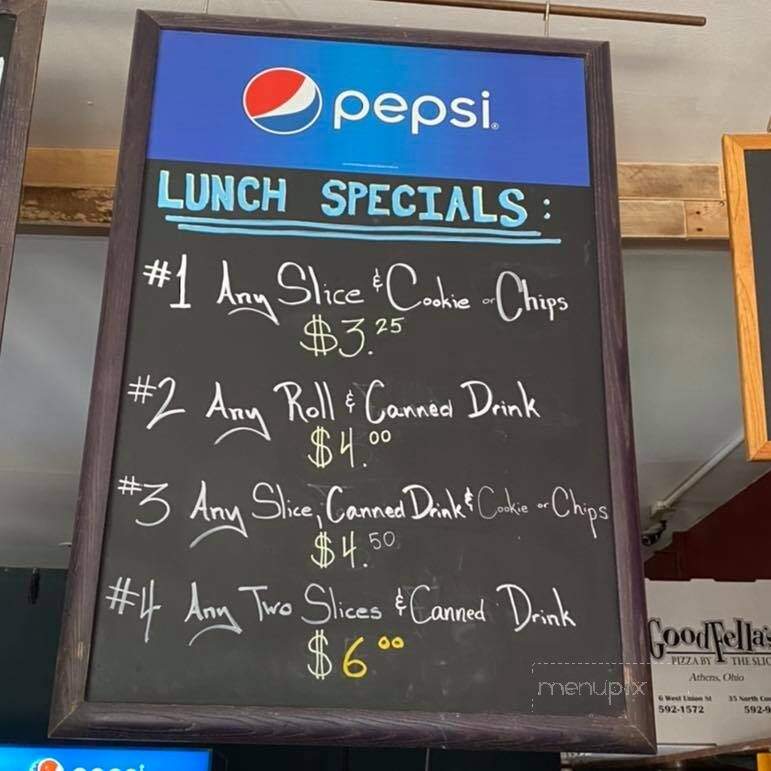 pepsi
LUNCH SPECIALS:
#1 Any Slice & Cookie or Chips
$3.25
#2 Any Roll & Canned Drink
$4.00
#3 Any Slice, Canned Drink & Cookie or Chips
$4.50
#4 Any Two Slices & Canned Drink
$6.00
menupix
GoodFella's
PIZZA BY THE SLIC
Athens, Ohio
6 West Union St 35 North Co
592-1572 592-9